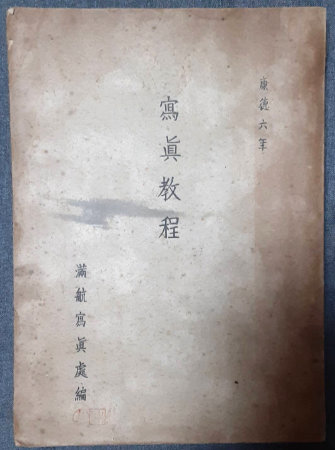 康德六年
寫眞教程
滿航寫眞處編